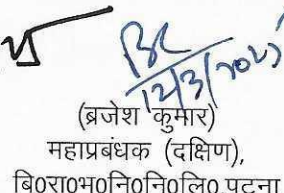 12/3/2025
(ब्रजेश कुमार)
महाप्रबंधक (दक्षिण),
बि०रा०भ०नि०नि०लि० पटना